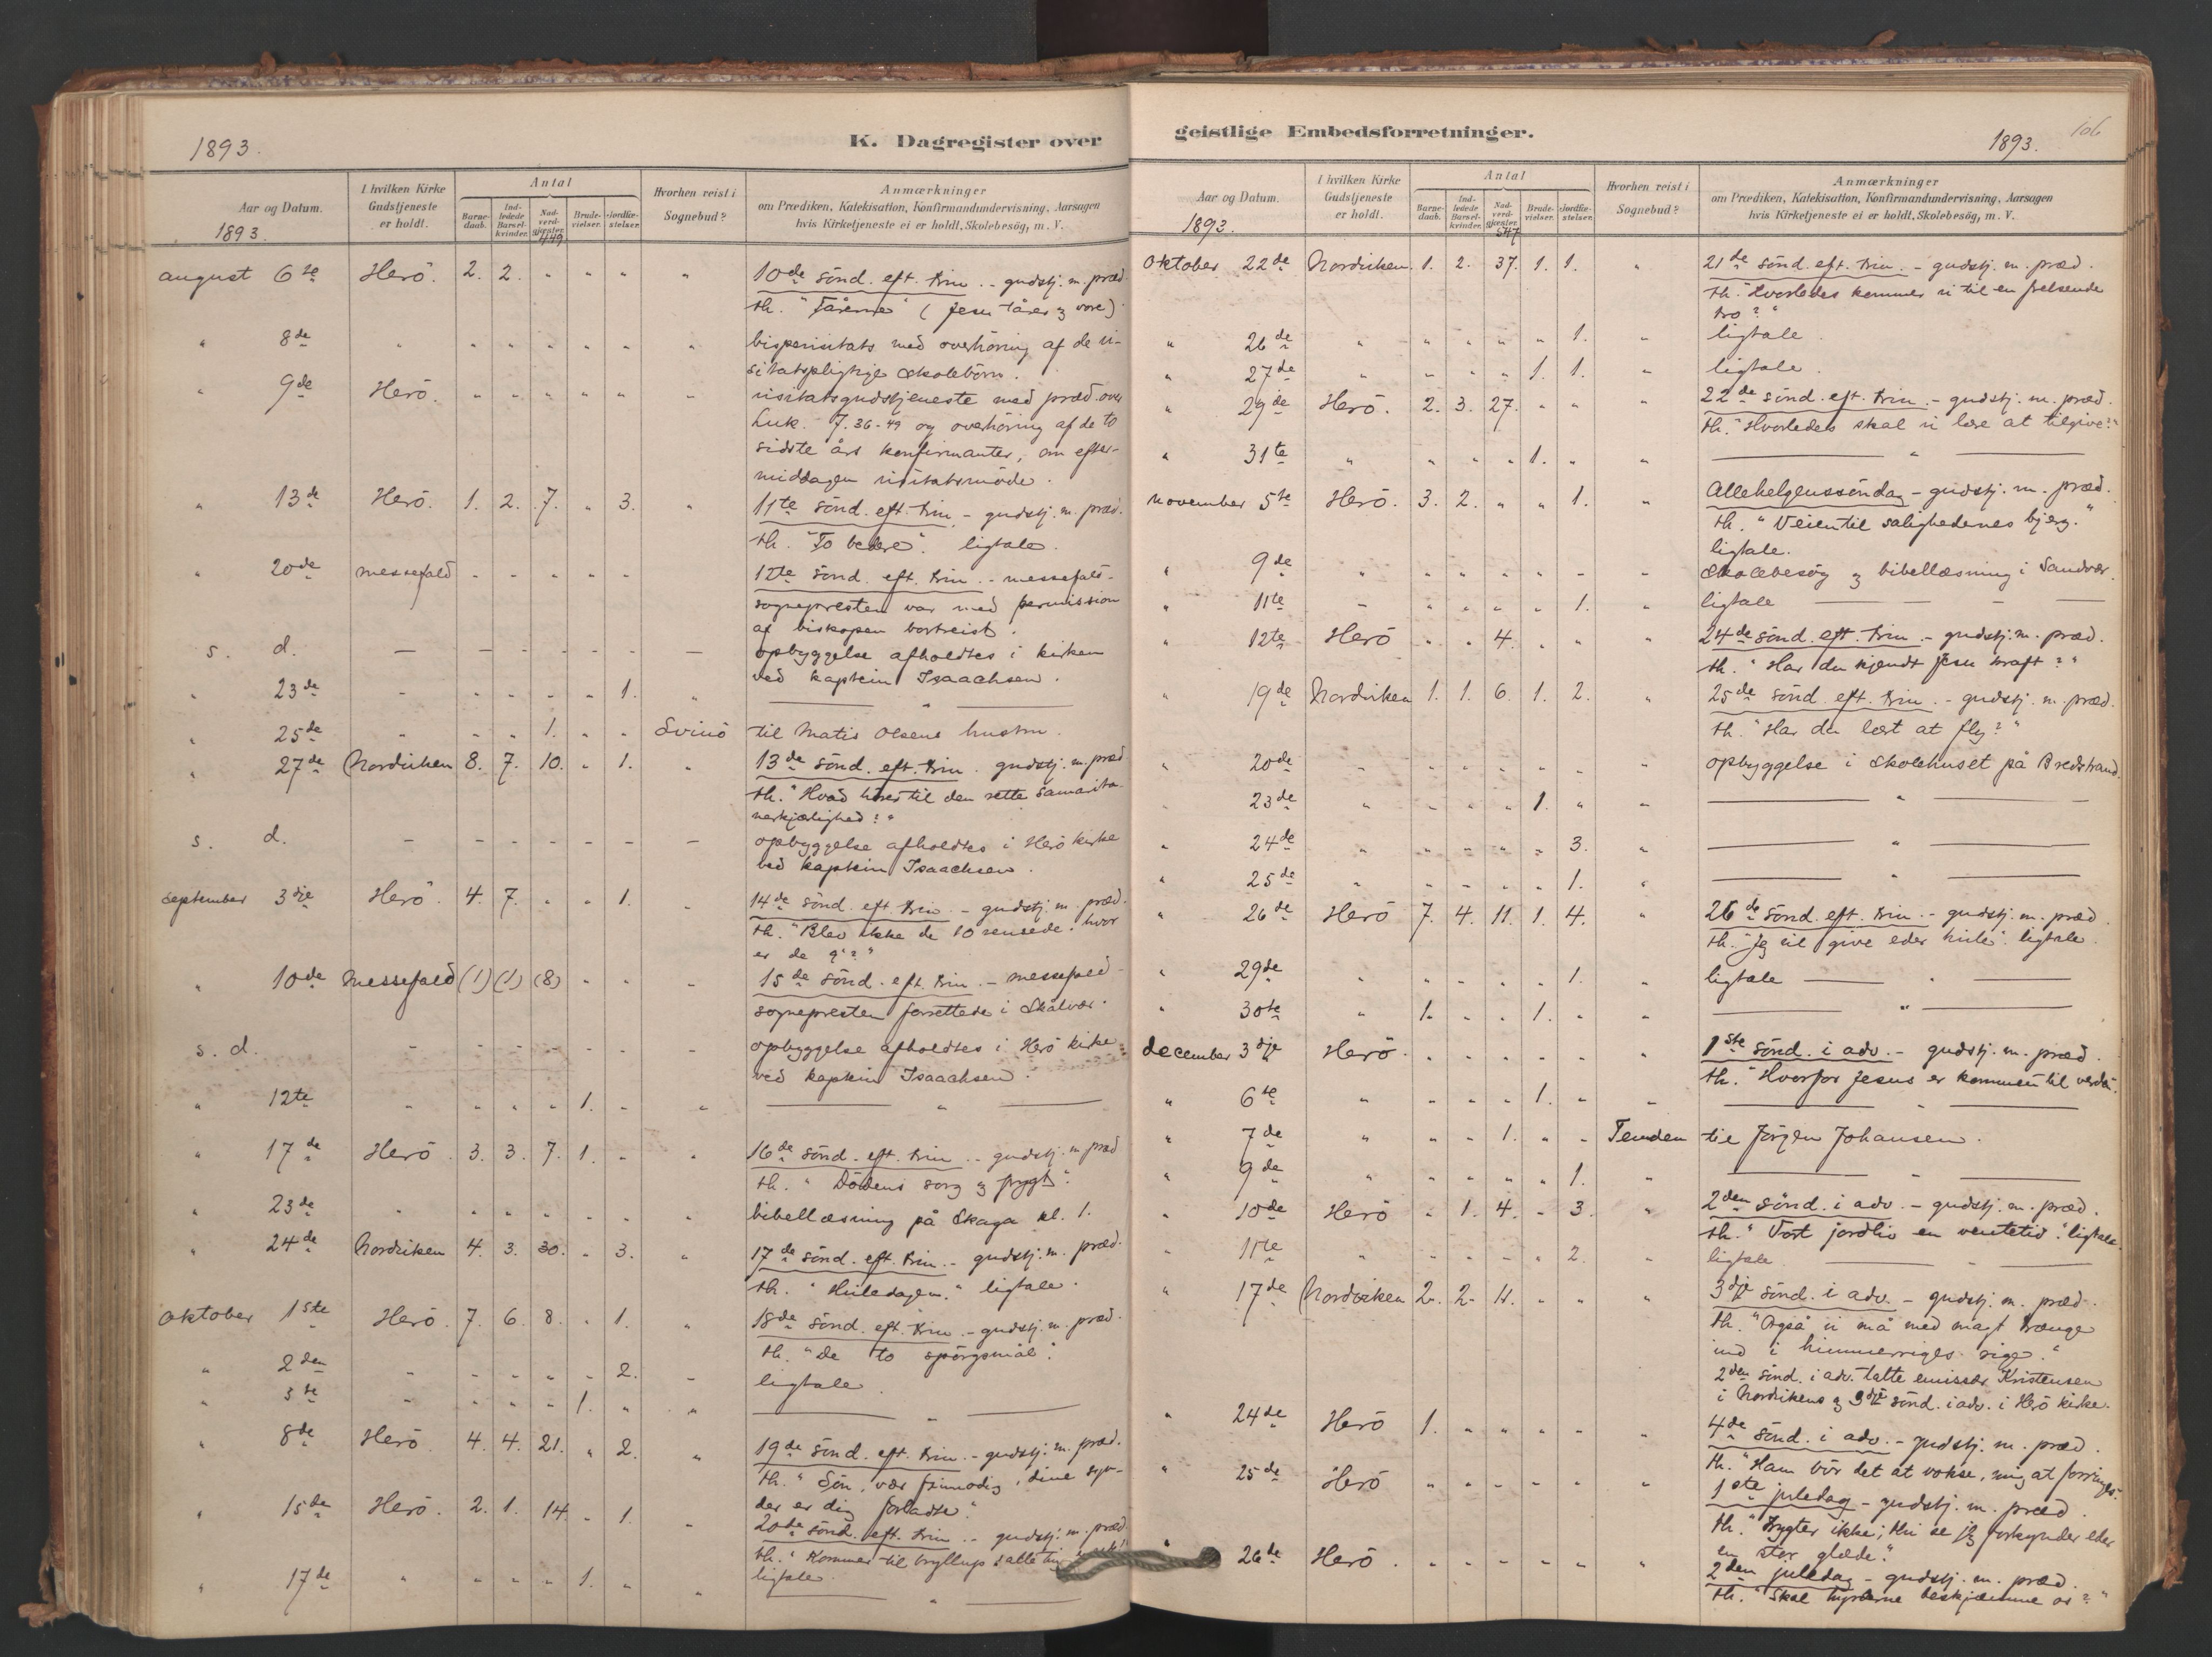 1893.
K. Dagregister over
Aar og Datum.
1893.
I hvilken Kirke Gudstjeneste er holdt.
Antal
Barne-daab.
Ind-ledede Barsel-kvinder.
Nad-verd-gjester.
449
Brude-vielser.
Jordfæ-stelser.
Hvorhen reist i Sognebud?
Anmærkninger
om Prædiken, Katekisation, Konfirmandundervisning, Aarsagen
hvis Kirketjeneste ei er holdt, Skolebesög, m. V.
august 6te Herö. 2. 2. " " " " 10de sönd. eft. trin. - gudstj. m. præd.
th. "Tårerne" (Jesu tårer og vore).
" 8de " " " " " " " bispevisitats med overhöring af de vi-
sitatspligtige skolebörn.
" 9de Herö. " " " " " " visitatsgudstjeneste med præd. over
Luk. 7. 36-49 og overhöring af de to
sidste års konfirmanter, om efter-
middagen visitatsmöde.
" 13de Herö. 1. 2. 7. " 3. " 11te sönd. eft. trin. - gudstj. m. præd.
th. "To bedere". ligtale.
" 20de messefald - - - - - 12te sönd. eft. trin. - messefald -
sognepresten var med permission
af biskopen bortreist.
s. d. - - - - - - - opbyggelse afholdtes i kirken
ved kaptein Isaachsen.
" 23de - - - - - 1. " — " —
" 25de " " " 1. " " Svinö til Matis Olsens hustru.
" 27de Nordviken 8. 7. 10. " 1. " 13de sönd. eft. trin. gudstj. m. præd.
th. "Hvad hörer til den rette samarita-
nerkjærlighed?"
s. d. - - - - - - - opbyggelse afholdtes i Herö kirke
ved kaptein Isaachsen.
september 3dje Herö. 4. 7. " " 1. " 14de sönd. eft. trin. - gudstj. m. præd.
th. "Blev ikke de 10 rensede. hvor
er de 9?"
" 10de Messefald (1) (1) (8) - - - 15de sönd. eft. trin. - messefald -
sognepresten forrettede i Skålvær.
s. d. - - - - - - - opbyggelse afholdtes i Herö kirke
ved kaptein Isaachsen.
" 12te " " " " 1. " " — " —
" 17de Herö. 3. 3. 7. 1. - " 16de sönd. eft. trin. - gudstj. m. præd.
th. "Dödens sorg og frygt".
" 23de " " " " " " " bibellæsning på Skaga kl. 1.
" 24de Nordviken 4. 3. 30. " 3. " 17de sönd. eft. trin. - gudstj. m. præd.
th. "Hviledagen." ligtale.
oktober 1ste Herö. 7. 6. 8. " 1. " 18de sönd. eft. trin. - gudstj. m. præd.
th. "De to spörgsmål".
" 2den " " " " " 2. " ligtale.
" 3te " " " " 1. " " — " —
" 8de Herö. 4. 4. 21. " 2. " 19de sönd. eft. trin. - gudstj. m. præd.
th. "Sön, vær frimodig, dine syn-
der er dig forladte."
" 15de Herö. 2. 1. 14. " 1. " 20de sönd. eft. trin. - gudstj. m. præd.
th. "Kommer til bryllup, alle ting
ligtale.
" 17de " " " " 1. " " — " —
geistlige Embedsforretninger.
1893.
106
Aar og Datum.
1893.
I hvilken Kirke Gudstjeneste er holdt.
Antal
Barne-daab.
Ind-ledede Barsel-kvinder.
Nad-verd-gjester.
547
Brude-vielser.
Jordfæ-stelser.
Hvorhen reist i Sognebud?
Anmærkninger
om Prædiken, Katekisation, Konfirmandundervisning, Aarsagen
hvis Kirketjeneste ei er holdt, Skolebesög, m. V.
Oktober 22de Nordviken. 1. 2. 37. 1. 1. " 21de sönd. eft. trin. - gudstj. m. præd.
th. "Hvorledes kommer vi til en frelsende
tro?"
" 26de " " " " " 1. " ligtale.
" 27de " " " " 1. 1. " ligtale.
" 29de Herö. 2. 3. 27. " " " 22de sönd. eft. trin. - gudstj. m. præd.
th. "Hvorledes skal vi lære at tilgive?"
" 31te " " " " 1. " " — " —
November 5te Herö. 3. 2. " " 1. " Allehelgenssöndag - gudstj. m. præd.
th. "Veien til salighedernes bjerg."
ligtale.
" 9de " " " " " " " Skolebesög og bibellæsning i Sandvær.
" 11te " " " " " 1. " ligtale — " —
" 12te Herö " " 4. " " " 24de sönd. eft. trin. - gudstj. m. præd.
th. "Har du kjendt Jesu kraft?"
" 19de Nordviken 1. 1. 6. 1. 2. " 25de sönd. eft. trin. - gudstj. m. præd.
th. "Har du lært at fly?"
" 20de " " " " " " " opbyggelse i skolehuset på Bredstrand.
" 23de " " " " 1. " " — " —
" 24de " " " " " 3. " — " —
" 25de " " " " " 1. " — " —
" 26de Herö 7. 4. 11. 1. 4. " 26de sönd. eft. trin. - gudstj. m. præd.
th. "Jeg vil give eder hvile". ligtale.
" 29de " " " " " 1. " ligtale — " —
" 30te " 1. " " 1. " " — " —
december 3dje Herö. " " " " " " 1ste sönd. i adv. - gudstj. m. præd.
th. "Hvorfor Jesus er kommen til verden."
" 6te " " " " 1. " " — " —
" 7de " " " 1. " " Tenden til Jörgen Johansen.
" 9de " " " " " 1. " — " —
" 10de Herö " 1. 4. " 3. " 2den sönd. i adv. - gudstj. m. præd.
th. "Vort jordliv en ventetid". ligtale.
" 11te " " " " " 2. " ligtale. — " —
" 17de Nordviken 2. 2. 11. " " " 3dje sönd. i adv. - gudstj. m. præd.
th. "Også vi må med magt trænge
ind i himmeriges rige."
2den sönd. i adv. talte emissær Kristensen
i Nordvikens og 3dje sönd. i adv. i Herö kirke.
" 24de Herö 1. " " " " " 4de sönd. i adv. - gudstj. m. præd.
th. "Ham bör det at vokse, mig at forringes."
" 25de Herö " " " " " " 1ste juledag - gudstj. m. præd.
th. "Frygter ikke; thi se jeg forkynder eder
en stor glæde."
" 26de Herö. " " " " " " 2den juledag - gudstj. m. præd.
th. "Skal hyrderne beskjæmme os?"